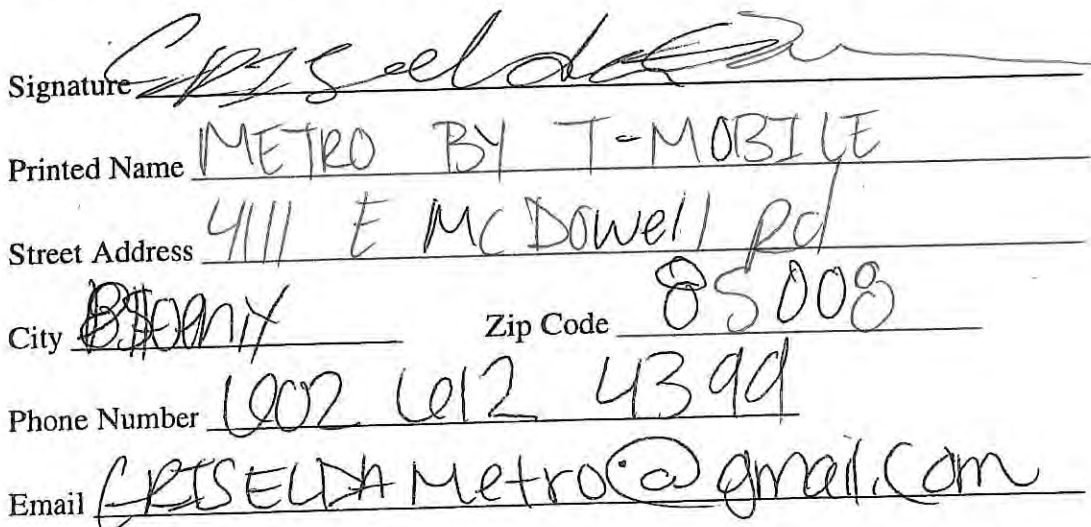 Signature Criselda
Printed Name METRO BY T-MOBILE
Street Address 4111 E McDowell Rd
City Zip Code 85008
Phone Number 602 612 4399
Email CRISELDAMetro@gmail.com